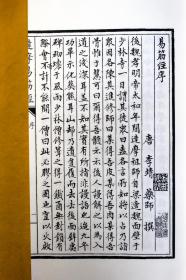 易筋經序
唐 李靖 藥師 撰
後魏孝明帝太和年間達摩大師自梁適魏面壁于
少林寺一日謂其徒眾曰盍各言所知將以占乃詣
眾因各陳其進修師曰某得吾皮某得吾肉某得吾
骨惟于慧可曰爾得吾髓云云後人漫解之以為入
道之淺深耳蓋不知其實有所指非漫語也迨九年
功畢示化葬熊耳山却乃遺隻履而去後面壁處
碑砌壞于風雨少林僧修葺得一鐵函無封鎖有
際會百計不能開一僧悟曰此必膠之固宜以火
易筋經
序